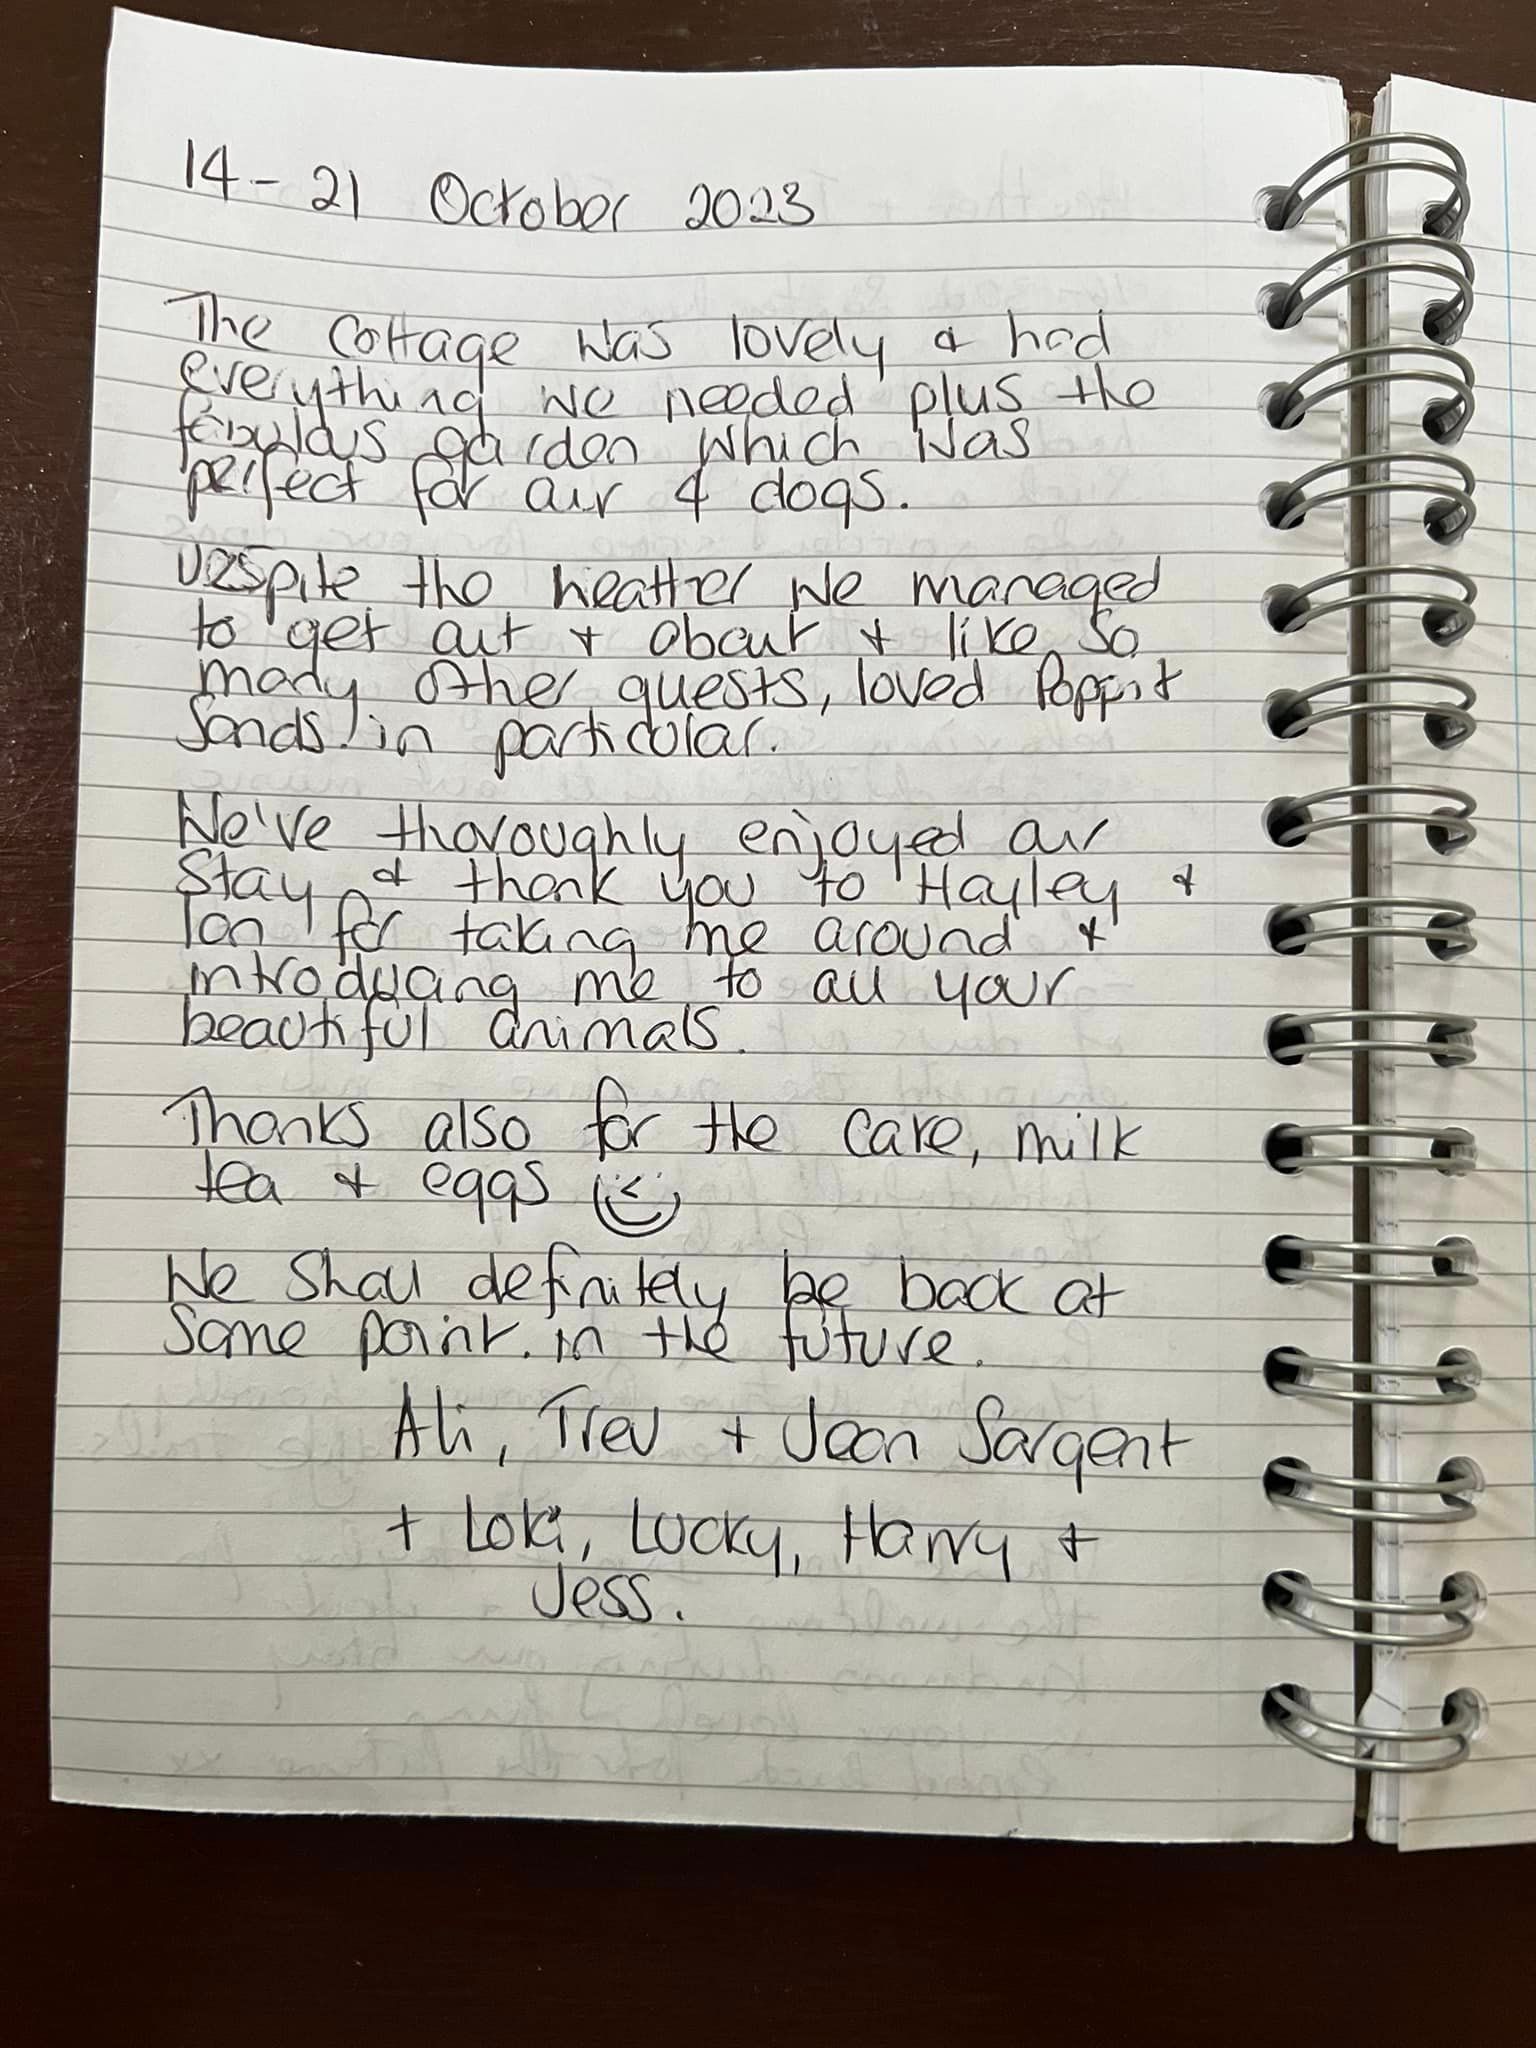 14 - 21 October 2023
The cottage was lovely & had
everything we needed plus the
fabulous garden which was
perfect for our 4 dogs.
Despite the weather we managed
to get out & about & like so
many other guests, loved Poppit
Sands in particular.
We've thoroughly enjoyed our
stay & thank you to Hayley &
Ian for taking me around &
introducing me to all your
beautiful animals.
Thanks also for the cake, milk
tea & eggs
We shall definitely be back at
some point in the future.
Ali, Trev + Jean Sargent
+ Loki, Lucky, Harry +
Jess.